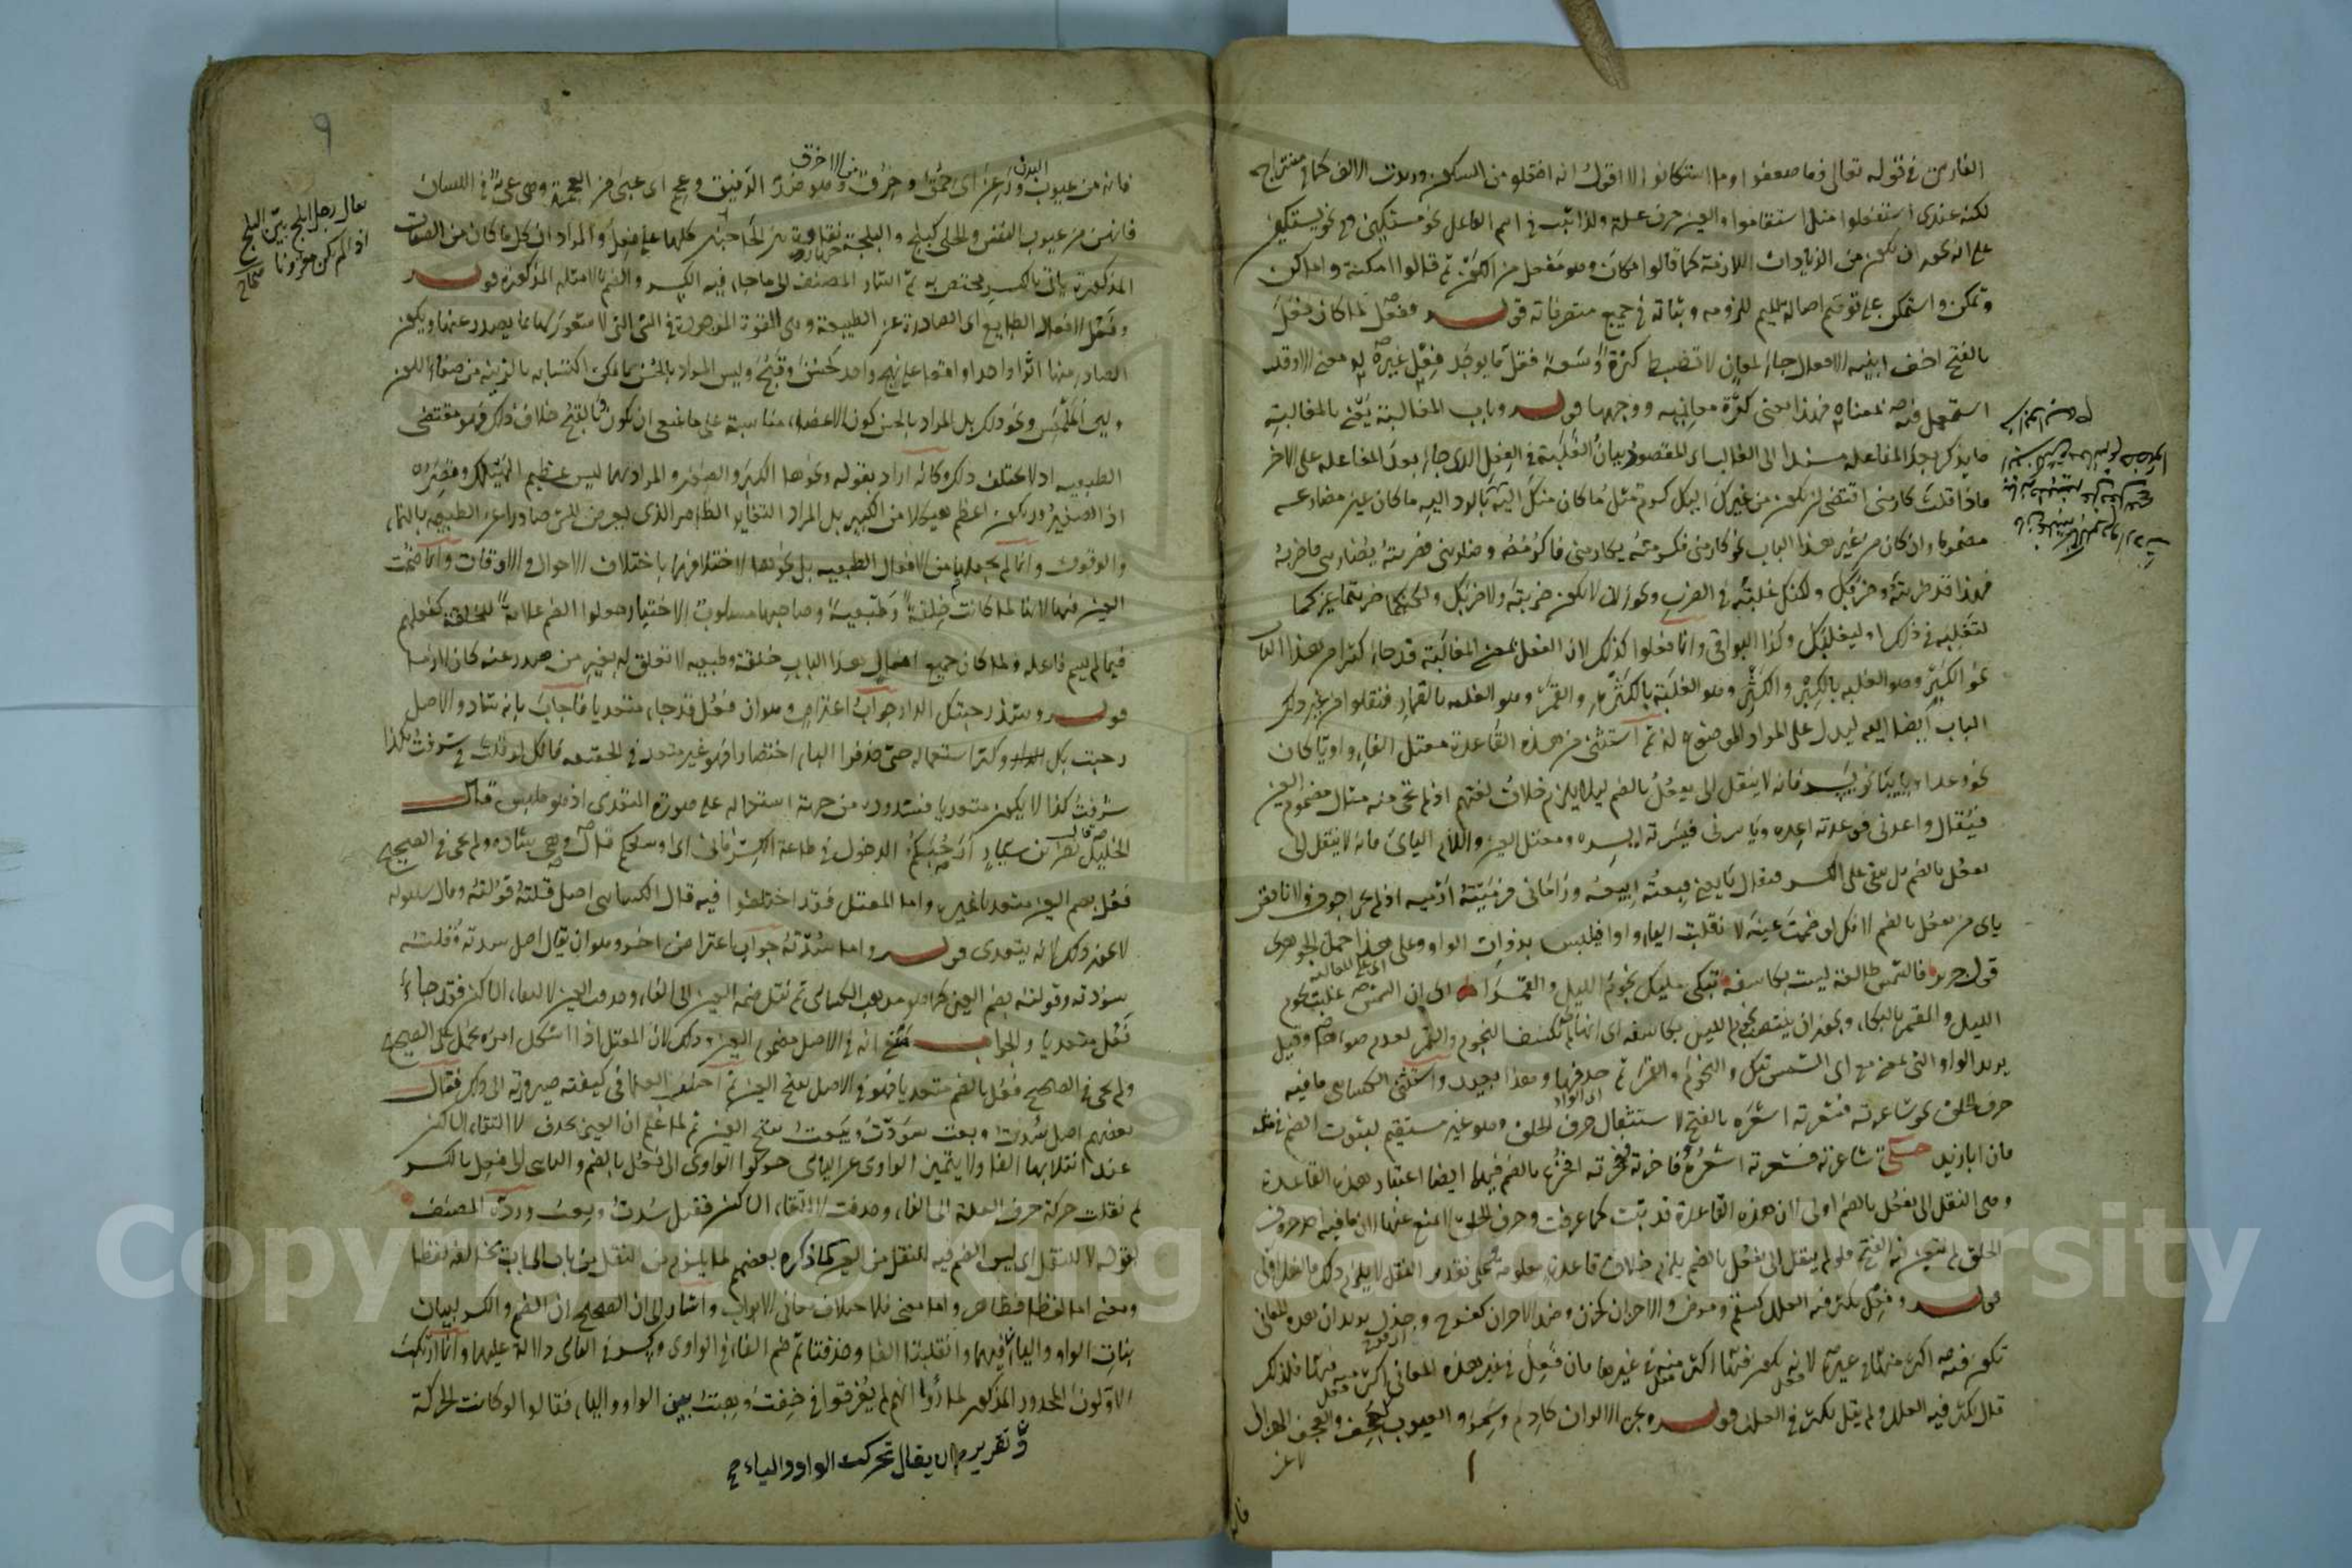 الفارسي في قوله تعالى فما ضعفوا وما استكانوا لا اقول انه افتعلوا من السكن وزيدت الالف كما في منتزاح
لكنه عندى استفعلوا مثل استقاموا والعين حرف علة ولذا ثبت في اسم الفاعل نحو مستكين وفي نحو يستكين
على انه يجوز ان تكون من الزيادات اللازمة كما قالوا مكان وهو مفعل من الكون ثم قالوا امكنة واماكن
وتمكن واستمكن على توهم اصالة الميم للزومه وثباته في جميع متصرفاته قوله وفعل لما كان فعل
بالفتح اخف ابنية الافعال جاء لمعان لا تنضبط كثرة وسعة فقل ما يوجد فعل غيره له معنى الا وقد
استعمل فيه لمعناه فهذا معنى كثرة معانيه ووجهها قوله وباب المغالبة يعنى بالمغالبة
ما يذكر بعد المفاعلة مسندا الى الغالب اى المقصود بيان الغلبة في الفعل الذى جاء بعد المفاعلة على الآخر
فاذا قلت كارمنى اقتضى ان يكون من غيرك اليك كرم مثل ما كان منك اليه
مضموما وان كان من غير هذا الباب نحو كارمنى فكرمته يكارمنى فاكرمه وضاربنى فضربته يضاربنى فاضربه
لتغلبه في ذلك او ليغلبك وكذا البواقى وانما فعلوا كذلك لان الفعل بمعنى المغالبة قد جاء كثيرا من هذا الباب
نحو الكبر وهو الغلبة بالكبر والكثر وهو الغلبة بالكثرة والقمر وهو الغلبة بالقمار فنقلوا من غير ذلك
الباب ايضا اليه ليدل على المراد الموضوع له ثم استثنى من هذه القاعدة معتل الفاء واويا كان
نحو وعد او يائيا نحو يسر فانه لا ينقل الى يفعل بالضم لئلا يلزم خلاف لغتهم اذ لم يجئ منه مثال مضموم العين
فيقال واعدنى فوعدته اعده وياسرنى فيسرته ايسره ومعتل العين واللام اليائى فانه لا ينقل الى
يفعل بالضم بل يبقى على الكسر فيقال بايعنى فبعته ابيعه وراماني فرميته ارميه اذ لم يجئ اجوف ولا ناقص
يائى من يفعل بالضم لانك لو ضممت عينه لانقلبت الياء واوا فيلتبس بذوات الواو وعلى هذا حمل الجوهرى
قول جرير فالشمس طالعة ليست بكاسفة تبكى عليك نجوم الليل والقمرا اى ان الشمس غلبت نجوم
الليل والقمر بالبكاء ويجوز ان ينتصب نجوم الليل بكاسفة اى انها لم تكسف النجوم والقمر لعدم ضوءها وقيل
يريد الواو التى بمعنى مع اى الشمس تبكى والنجوم والقمر ثم حذفها وهذا بعيد واستثنى الكسائى ما فيه
حرف الحلق نحو شاعرته فشعرته اشعره بالفتح لاستثقال حرف الحلق وهو غير مستقيم لثبوت الضم في مثله
فان ابا زيد حكى شاعرته فشعرته اشعره وفاخرته ففخرته افخره بالضم فيهما ايضا اعتبار بهذه القاعدة
الحلق لم يتعين له الفتح ولو لم ينقل الى يفعل بالضم يلزم خلاف قاعدة معلومة
قوله وفعل يكثر فيه العلل كسقم ومرض والاحزان كحزن وضد الاحزان كفرح وجذل يريد ان هذه المعانى
قال يكثر فيه العلل ولم يقل يكثر في العلل قوله ويجئ الالوان كادم وسمر والعيوب كعجف والعجف الهزال
٩
يقال رجل ابلج بين البلج
اذا لم يكن مقرونا صحاح
فانه من عيوب البدن ورعن اى حمق وخرق من الاخرق وهو ضد الرفيق وعجم اى عيى من العجمة وهى عى في اللسان
المذكورة ياتى بالكسر مختص به ثم اشار المصنف الى ما جاء فيه الكسر والضم بالامثلة المذكورة قوله
وفعل لافعال الطبايع اى الصادرة عن الطبيعة وهى القوة الموجودة في الشئ التى لا شعور لها بما يصدر عنها ويكون
الصادر منها اثرا واحدا واقعا على نهج واحد كحسن وقبح وليس المراد بالحسن ما يمكن اكتسابه بالزينة من صفاء اللون
ولين الملمس ونحو ذلك بل المراد بالحسن كون الاعضاء متناسبة على ما ينبغى ان يكون وبالقبح خلاف ذلك وهو مقتضى
الطبيعة اذ لا يختلف ذلك وكانه اراد بقوله ونحوها الكبر والصغر والمراد بهما ليس عظيم الهيكل وقصره
اذ الصغير قد يكون اعظم هيكلا من الكبير بل المراد التغاير الظاهر الذى يعرض للشئ صادرا عن الطبيعة بالنماء
والوقوف وانما لم يجعلها من الافعال الطبيعية بل نحوها لاختلافها باختلاف الاحوال والاوقات وانما ضمت
العين فيها لانها لما كانت خلقة وطبيعة وصاحبها مسلوب الاختيار جعلوا الضم علامة للخلقة كفعلهم
فيما لم يسم فاعله ولما كان جميع افعال هذا الباب خلقة وطبيعة لا تعلق له بغير من صدر عنه كان لازما
قوله وشذ رحبتك الدار جواب اعتراض وهو ان فعل قد جاء متعديا فاجاب بانه شاذ والاصل
رحبت بك الدار وكثر استعماله حتى حذفوا الباء اختصارا فهو غير متعد في الحقيقة فانك لو قلت في شرفت بكذا
شرفت كذا لا يكون متعديا فشذوذه من جهة استعماله على صورة المتعدى اذ هو ملتبس قال
الخليل قال نصر بن سيار ارحبكم الدخول في طاعة الكرمانى اى اوسعكم قال وهى شاذة ولم يجئ في الصحيح
فعل بضم العين متعديا غيره واما المعتل فقد اختلفوا فيه قال الكسائى اصل قلته قولته وقال سيبويه
لا يجوز ذلك لانه يتعدى قوله واما سدته جواب اعتراض آخر وهو ان يقال اصل سدته وقلته
سودته وقولته بضم العين كما هو مذهب الكسائى ثم نقل ضمة العين الى الفاء وحذف العين لالتقاء الساكنين فقد جاء
فعل متعديا والجواب منع انه في الاصل مضموم العين وذلك لان المعتل اذا اشكل امره يحمل على الصحيح
ولم يجئ في الصحيح فعل بالضم متعديا فهو في الاصل بفتح العين ثم اختلف العلماء في كيفية صيرورته الى ذلك فقال
بعضهم اصل سدت وبعت سودت وبيعت بفتح العين ثم لما علم ان العين يحذف لالتقاء الساكنين
عند انقلابها الفا ولا يتميز الواوى عن اليائى حولوا الواوى الى فعل بالضم واليائى الى فعل بالكسر
ثم نقلت حركة حرف العلة الى الفاء وحذفت لالتقاء الساكنين فقيل سدت وبعت ورده المصنف
بقوله لا للنقل اى ليس الضم فيه للنقل من العين كما ذكره بعضهم لما يلزم من النقل من باب الى باب يخالفه لفظا
ومعنى اما لفظا فظاهر واما معنى فلاختلاف معانى الابواب واشار الى ان الصحيح ان الضم والكسر لبيان
بنات الواو والياء فيهما وانقلبتا الفا وحذفتا ثم ضم الفاء في الواوى وكسر في اليائى دلالة عليهما وانما ارتكب
الاولون المحذور المذكور لما رأوا انهم لم يفرقوا في خفت وبعت بين الواو والياء فقالوا لو كانت الحركة
وتقريره ان يقال تحركت الواو والياء صح